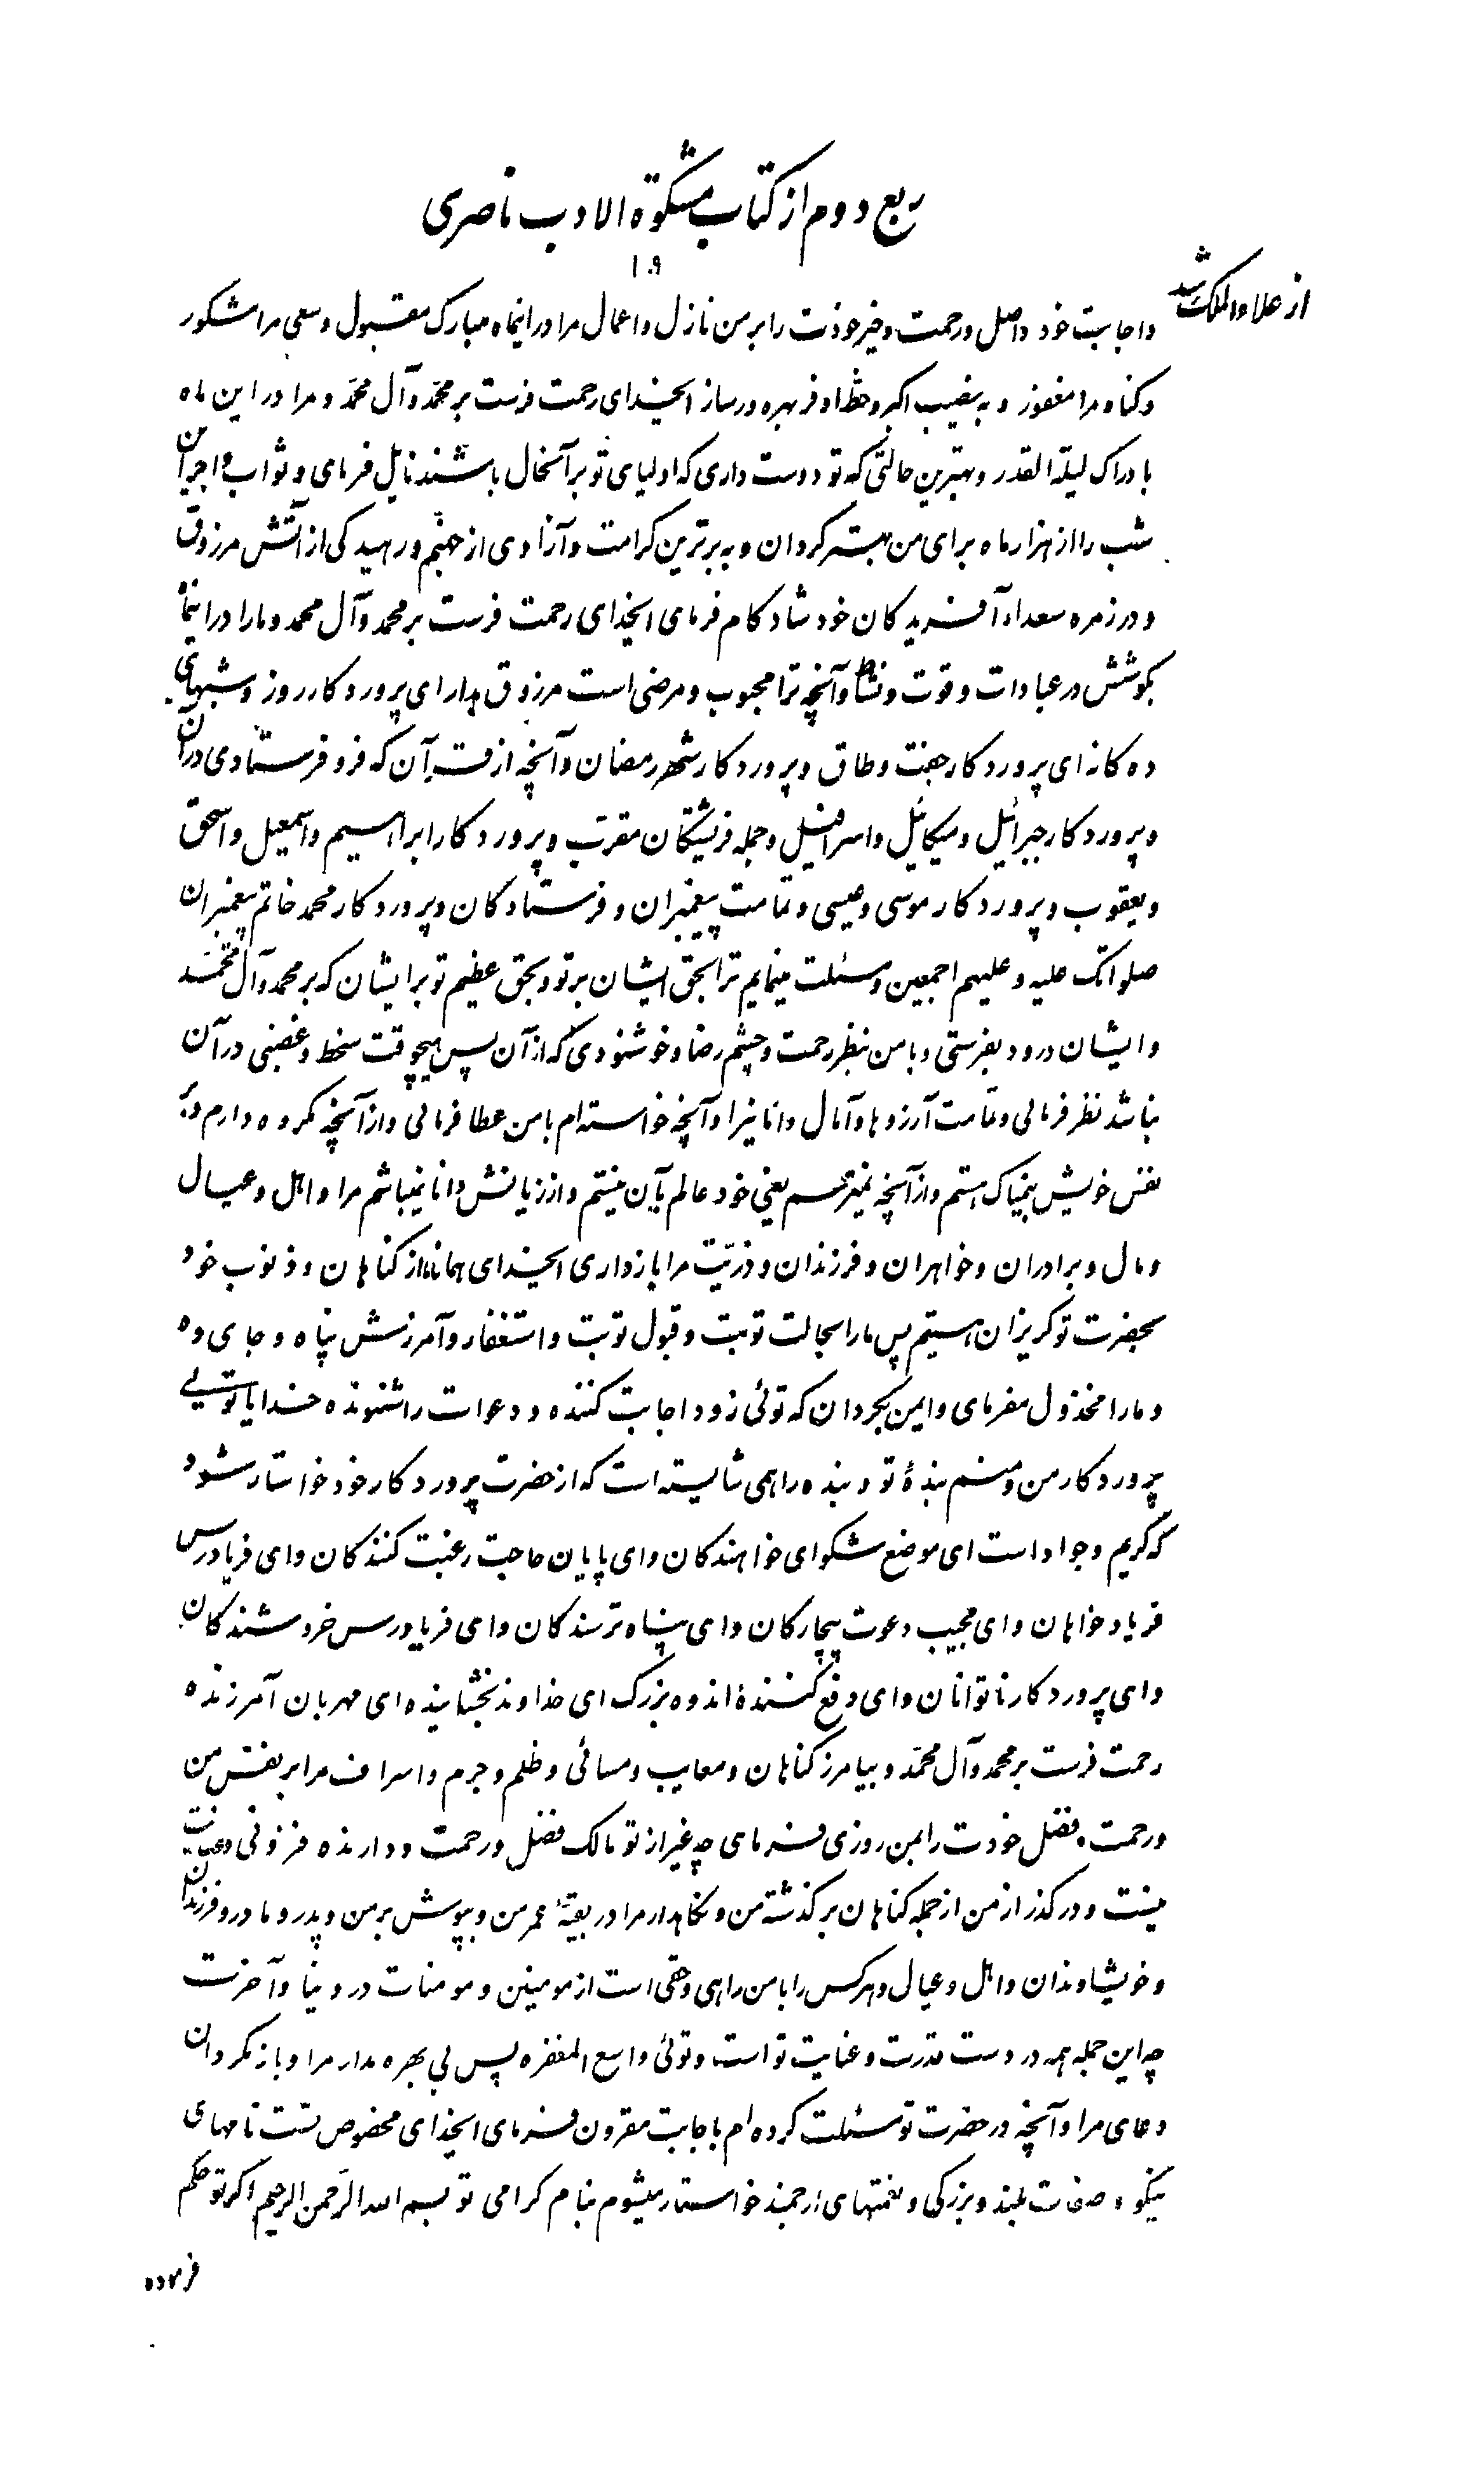 ربع دوم از کتاب مشکوة الادب ناصری
۱۰۹
از علاءالملک شد
و اجابت خود واصل و رحمت و خیر خودت را بر من نازل و اعمال مرا در اینماه مبارک مقبول و سعی مرا مشکور
و کناه مرا مغفور و به نصیب اکبر و حظ اوفر بهره ور ساز ایخدای رحمت فرست بر محمد و آل محمد و مرا در این ماه
بادراک لیلة القدر و بهترین حالتی که تو دوست داری که اولیای تو بر آنحال باشند نایل فرمای و ثواب و اجر آن
شب را از هزار ماه برای من بهتر کردان و به برترین کرامت و آزادی از جهنم و رهیدکی از آتش مرزوق
و در زمره سعداء آفریدکان خود شادکام فرمای ایخدای رحمت فرست بر محمد و آل محمد و ما را در اینماه
بکوشش در عبادات و قوت و نشاط و آنچه ترا محبوب و مرضی است مرزوق بدار ای پروردکار روز و شبهای
ده کانه ای پروردکار جفت و طاق و پروردکار شهر رمضان و آنچه از قرآن که فرو فرستادی در آن
و پروردکار جبرائیل و میکائیل و اسرافیل و جمله فریشتکان مقرب و پروردکار ابراهیم و اسمعیل و اسحق
و یعقوب و پروردکار موسی و عیسی و تمامت پیغمبران و فرستادکان و پروردکار محمد خاتم پیغمبران
صلواتک علیه و علیهم اجمعین و مسئلت مینمایم ترا بحق ایشان بر تو و بحق عظیم تو بر ایشان که بر محمد و آل محمد
و ایشان درود بفرستی و با من بنظر رحمت و چشم رضا و خوشنودی که از آن پس هیچوقت سخط و غضبی در آن
نباشد نظر فرمائی و تمامت آرزوها و آمال و امانی مرا و آنچه خواسته‌ام با من عطا فرمائی و از آنچه مکروه دارم و بر
نفس خویش بیمناک هستم و از آنچه نمیترسم یعنی خود عالم بآن نیستم و از زیانش دانا نمیباشم مرا و اهل و عیال
و مال و برادران و خواهران و فرزندان و ذریت مرا بازداری ایخدای همانا ما از کناهان و ذنوب خود
بحضرت تو کریزان هستیم پس ما را بحالت توبت و قبول توبت و استغفار و آمرزش پناه و جای ده
و ما را مخذول مفرمای و ایمن بکردان که توئی زود اجابت کننده و دعوات را شنونده خدایا توئی
پروردکار من و منم بندهٔ تو و بنده را همی شایسته است که از حضرت پروردکار خود خواستار شود
که کریم و جواد است ای موضع شکوای خواهندکان و ای پایان حاجت رغبت کنندکان و ای فریادرس
فریاد خواهان و ای مجیب دعوت بیچارکان و ای پناه ترسندکان و ای فریادرس خروشندکان
و ای پروردکار ناتوانان و ای دفع کنندهٔ اندوه بزرک ای خداوند بخشاینده ای مهربان آمرزنده
رحمت فرست بر محمد و آل محمد و بیامرز کناهان و معایب و مسائی و ظلم و جرم و اسراف مرا بر نفس من
و رحمت و فضل خودت را بمن روزی فرمای چه غیر از تو مالک فضل و رحمت و دارنده فزونی و عنایت
نیست و درکذر از من از جمله کناهان برکذشته من و نکاهدار مرا در بقیهٔ عمر من و بپوش بر من و پدر و مادر و فرزندان
و خویشاوندان و اهل و عیال و هرکس را با من راهی و حقی است از مومنین و مومنات در دنیا و آخرت
چه این جمله همه در دست قدرت و عنایت تو است و توئی واسع المغفره پس بی بهره مدار مرا و باز مکردان
دعای مرا و آنچه در حضرت تو مسئلت کرده‌ام باجابت مقرون فرمای ایخدای مخصوص تست نامهای
نیکو و صفات بلند و بزرکی و نعمتهای ارجمند خواستار میشوم بنام کرامی تو بسم الله الرحمن الرحیم اکر تو حکم
فرموده